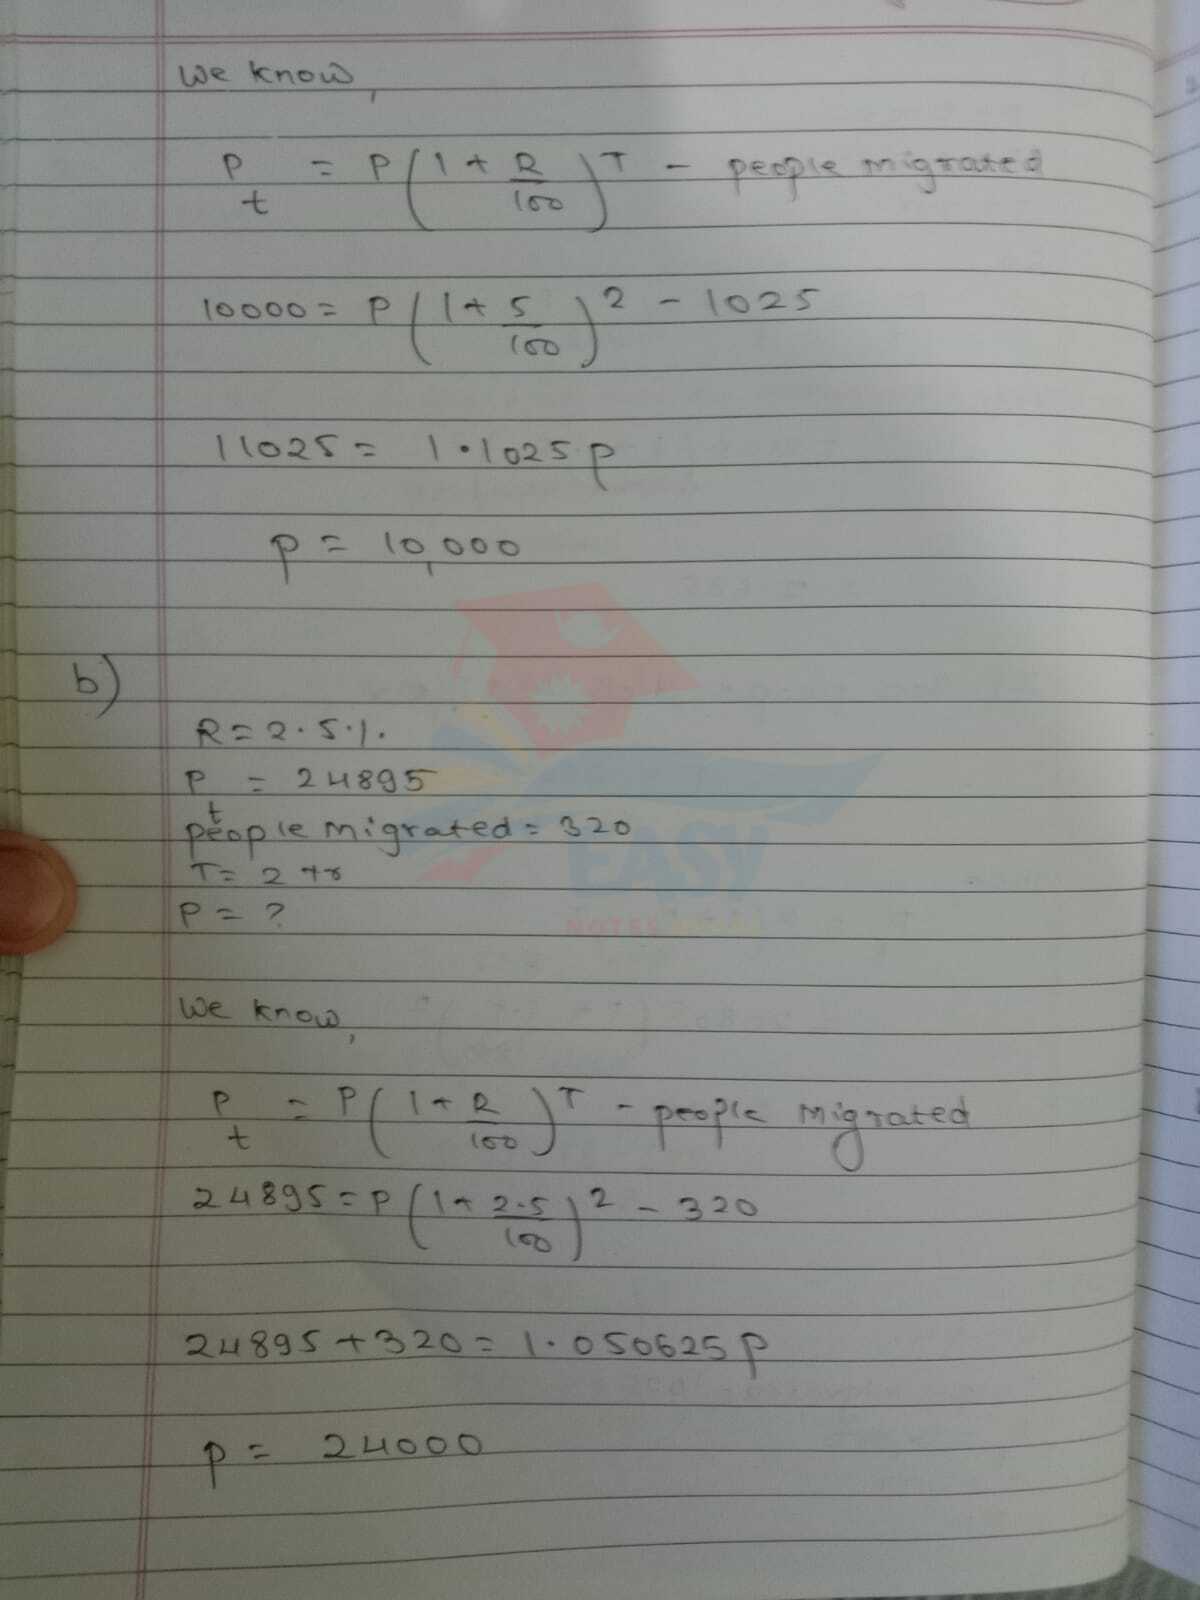 We know,
P = P(1 + R/100)^T - people migrated
t
10000 = P(1 + 5/100)^2 - 1025
11025 = 1.1025 p
p = 10,000
b)
R = 2.5%.
P = 24895
t
people migrated = 320
T = 2 yr
P = ?
EASY
NOTES
We know,
P = P(1 + R/100)^T - people migrated
t
24895 = P(1 + 2.5/100)^2 - 320
24895 + 320 = 1.050625 p
p = 24000